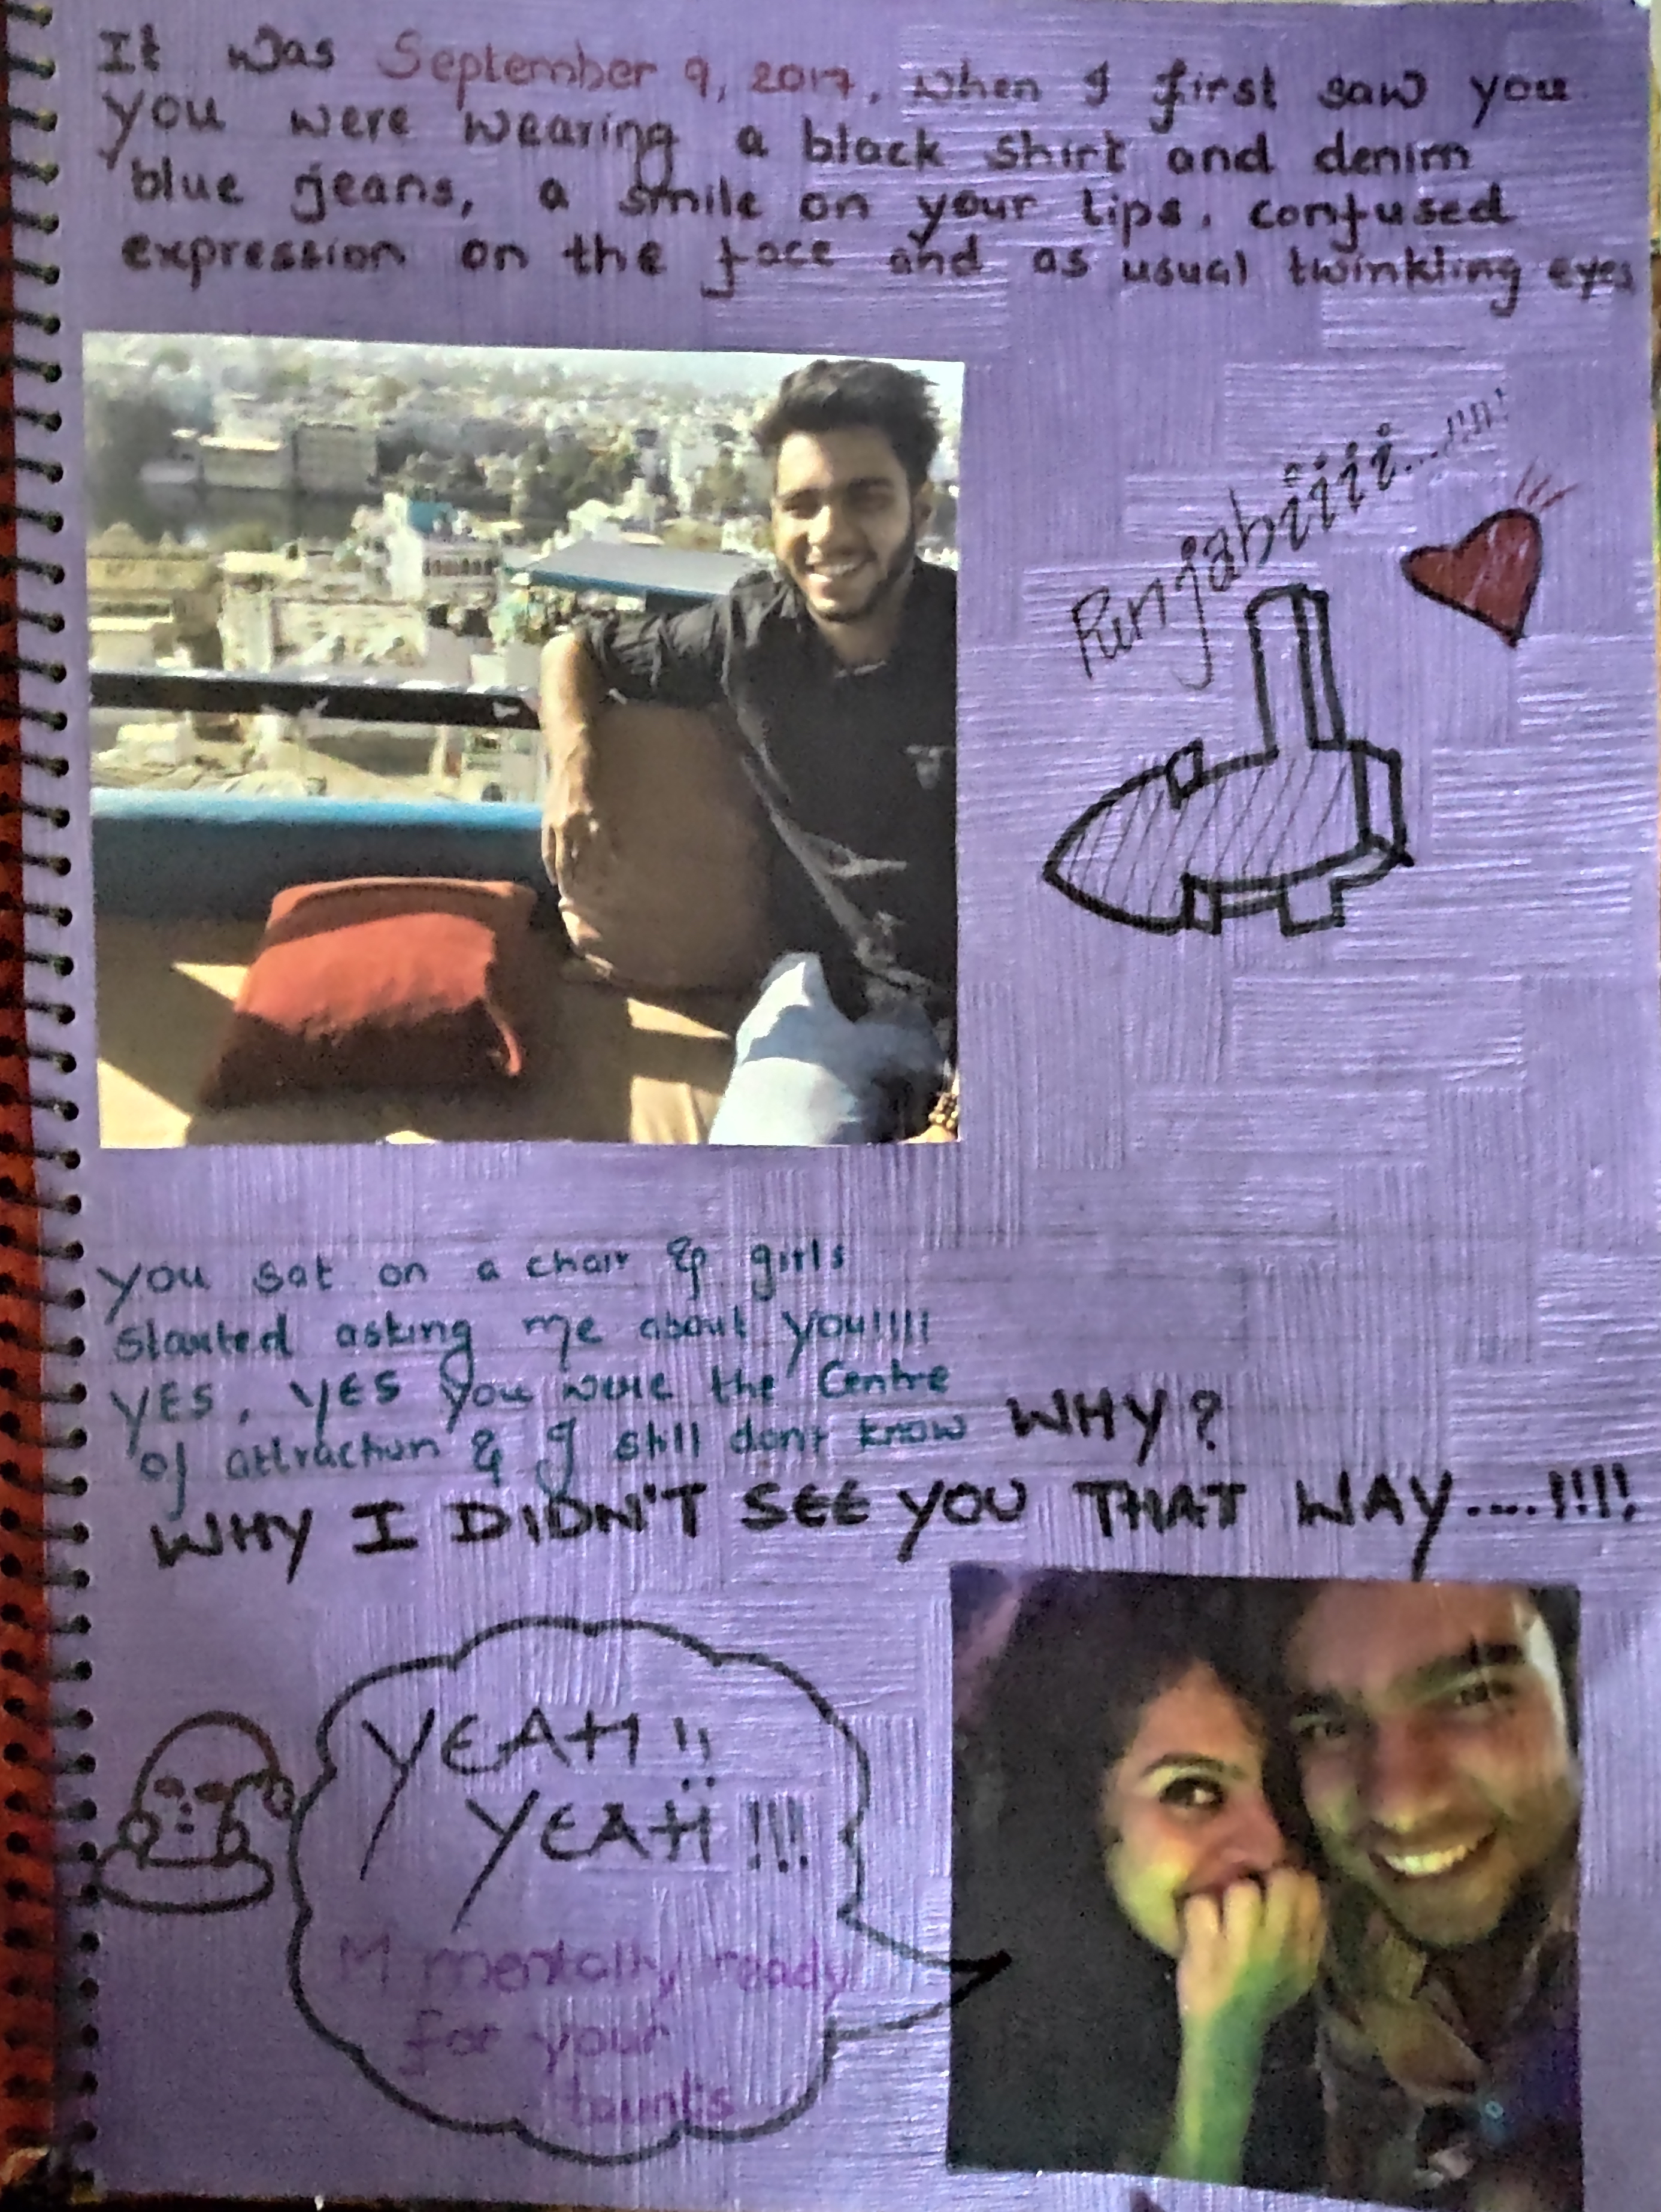 It was September 9, 2017, when I first saw you.
you were wearing a black shirt and denim
blue jeans, a smile on your lips, confused
expression on the face and as usual twinkling eyes
Punjabiiiii....!!!!!
you sat on a chair & girls
started asking me about you!!!!
YES, YES you were the Centre
of attraction & I still dont know WHY?
WHY I DIDN'T SEE YOU THAT WAY....!!!!
YEAH!!
YEAH!!!!
M mentally ready
for your
taunts